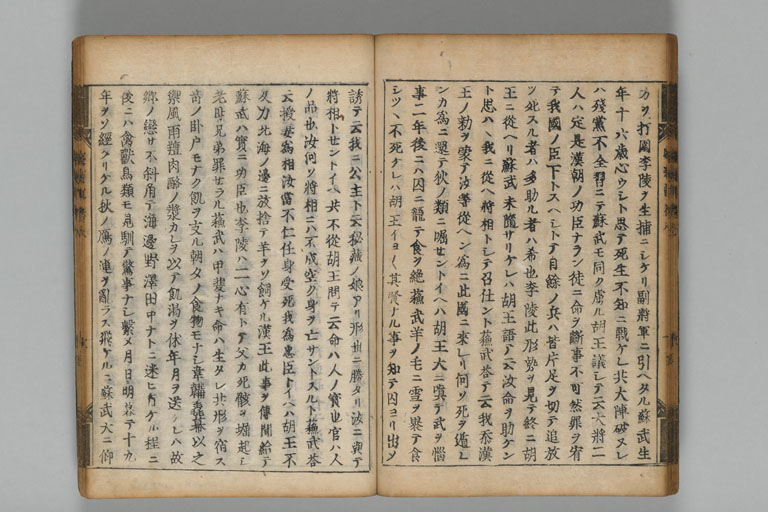 カヲ打囲李陵ヲ生捕ニシケリ副将軍ニ引ヘタル蘇武生
年十六歳心ウシト思テ死生不知ニ戦ケレ共大陣破ヌレ
ハ残黨不全習ニテ蘇武モ同ク虜ル胡王議シテ云大将二
人ハ定是漢朝ノ功臣ナラン徒ニ命ヲ断事不可然罪ヲ宥
テ我國ノ臣下トスヘシトテ自餘ノ兵ハ皆片足ヲ切テ追放
ツ死スル者ハ多助ル者ハ希也李陵此形勢ヲ見テ終ニ胡
王ニ從ヘリ蘇武未隨サリケレハ胡王語テ云汝命ヲ助ケン
ト思ハヽ我ニ從ヘ将相トシテ召仕ント蘇武荅テ云我忝漢
王ノ勅ヲ蒙テ汝等從ヘン為ニ此國ニ来レリ何ソ死ヲ遁レ
ンカ為ニ還テ狄ノ類ニ嘱セントイヘハ胡王大ニ嗔テ武ヲ惱
事二年後ニハ囚ニ籠テ食ヲ絶蘇武羊ノ毛ニ雪ヲ裹テ食
シツヽ不死ケレハ胡王イヨ〱其賢ナル事ヲ知テ囚ヨリ出ツ
誘テ云我ニ公主トテ秘蔵ノ娘アリ形世ニ勝タリ汝ニ與テ
将相トセントイヘ共不從胡王問テ云命ハ人ノ寶也官ハ人
ノ品也汝何ソ将相ニハ不成空ク身ヲ亡サントスルト蘇武荅
云授妻為相汝當不仁任身受死我為忠臣トイヘハ胡王不
及力北海ノ邊ニ放捨テ羊ヲソ飼ケル漢王此事ヲ傳聞給テ
蘇武ハ實ニ功臣也李陵ハ二心有トテ父カ死骸ヲ堀起シ
老母兄弟罪セラル蘇武ハ甲斐ナキ命ハ生タレ共形ヲ宿ス
奇ノ卧戸モナク飢ヲ支ル朝夕ノ食物モナシ韋韝毳幕以之
禦風雨羶肉酪ノ漿カレヲ以テ飢渇ヲ休年月ヲ送ケレハ故
郷ノ戀サ不斜角テ海邊野澤田中ナトニ迷ヒ行ケル程ニ
後ニハ禽獣鳥類モ見馴テ驚事ナシ繋メ月日明暮テ十九
年ヲソ經タリケル狄ノ鴈ノ連ヲ乱ラス飛ケルニ蘇武大ニ仰